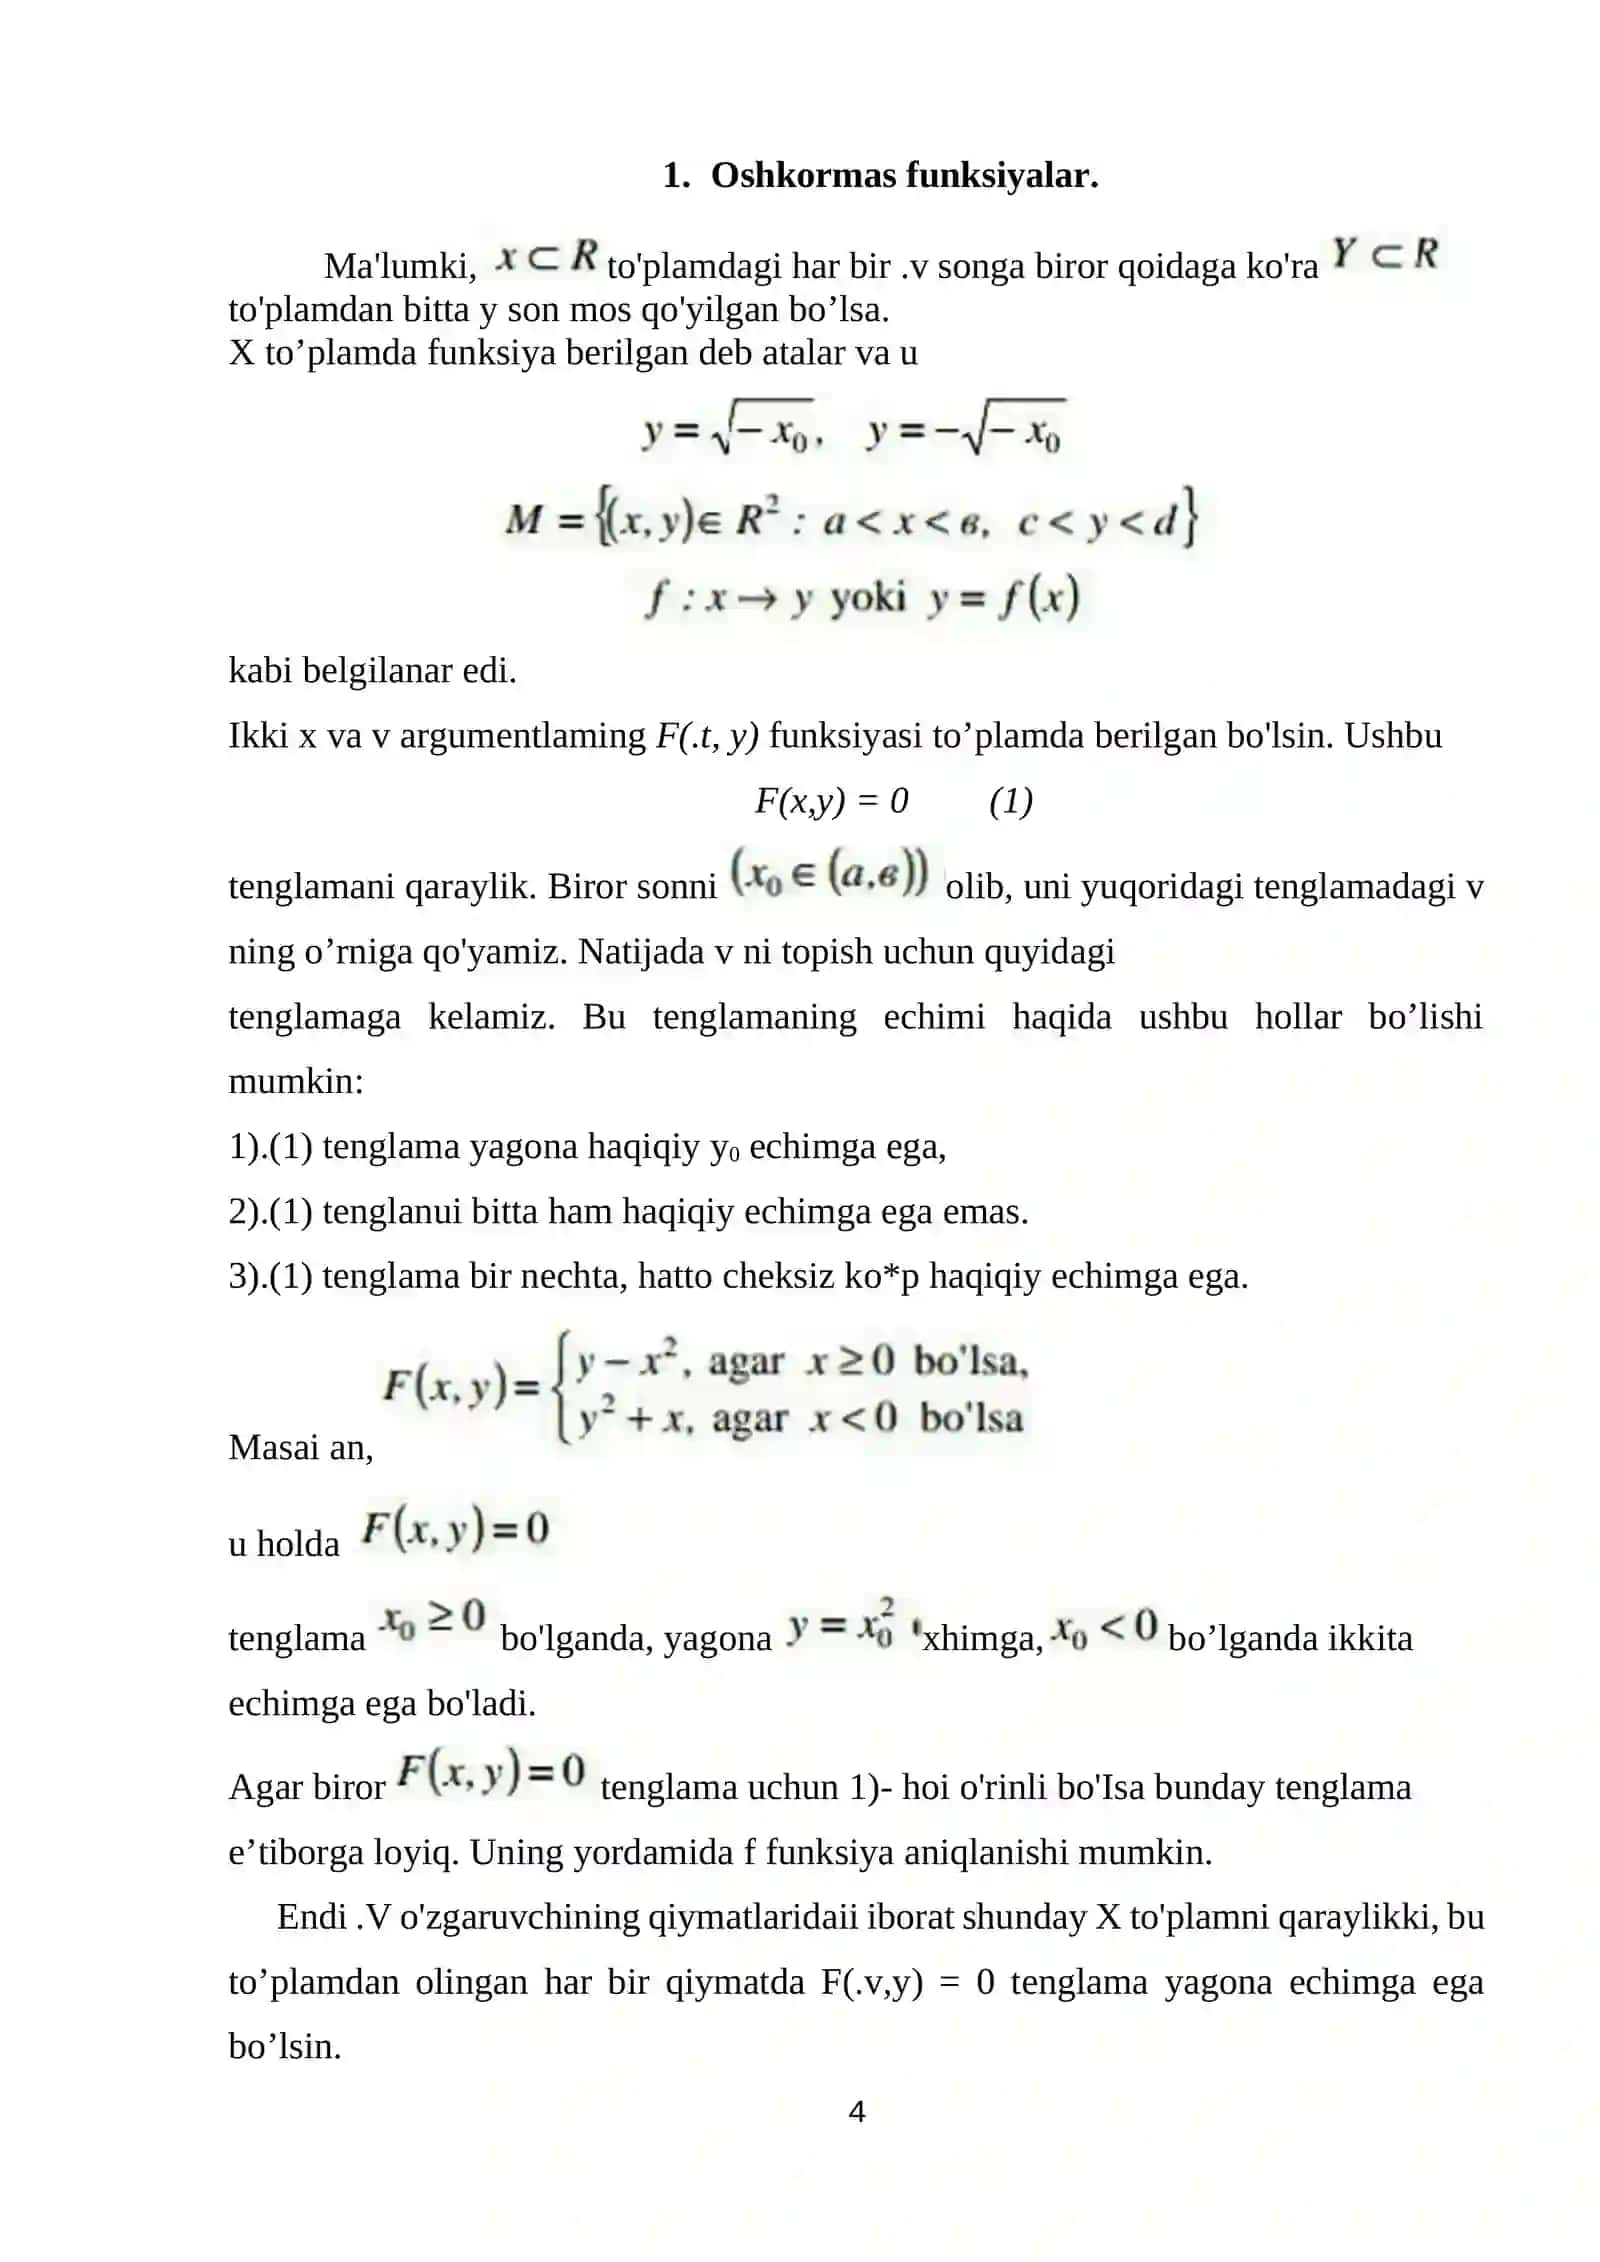 1. Oshkormas funksiyalar.
Ma'lumki, x ⊂ R to'plamdagi har bir .v songa biror qoidaga ko'ra Y ⊂ R
to'plamdan bitta y son mos qo'yilgan bo’lsa.
X to’plamda funksiya berilgan deb atalar va u
y = √(− x₀), y = −√(− x₀)
M = {(x, y)∈ R² : a < x < в, c < y < d}
f : x → y yoki y = f(x)
kabi belgilanar edi.
Ikki x va v argumentlaming F(.t, y) funksiyasi to’plamda berilgan bo'lsin. Ushbu
F(x,y) = 0 (1)
tenglamani qaraylik. Biror sonni (x₀ ∈ (a,в)) olib, uni yuqoridagi tenglamadagi v
ning o’rniga qo'yamiz. Natijada v ni topish uchun quyidagi
tenglamaga kelamiz. Bu tenglamaning echimi haqida ushbu hollar bo’lishi
mumkin:
1).(1) tenglama yagona haqiqiy y₀ echimga ega,
2).(1) tenglanui bitta ham haqiqiy echimga ega emas.
3).(1) tenglama bir nechta, hatto cheksiz ko*p haqiqiy echimga ega.
Masai an, F(x, y) = { y − x², agar x ≥ 0 bo'lsa,
y² + x, agar x < 0 bo'lsa
u holda F(x, y) = 0
tenglama x₀ ≥ 0 bo'lganda, yagona y = x₀² xhimga, x₀ < 0 bo’lganda ikkita
echimga ega bo'ladi.
Agar biror F(x, y) = 0 tenglama uchun 1)- hoi o'rinli bo'Isa bunday tenglama
e’tiborga loyiq. Uning yordamida f funksiya aniqlanishi mumkin.
Endi .V o'zgaruvchining qiymatlaridaii iborat shunday X to'plamni qaraylikki, bu
to’plamdan olingan har bir qiymatda F(.v,y) = 0 tenglama yagona echimga ega
bo’lsin.
4